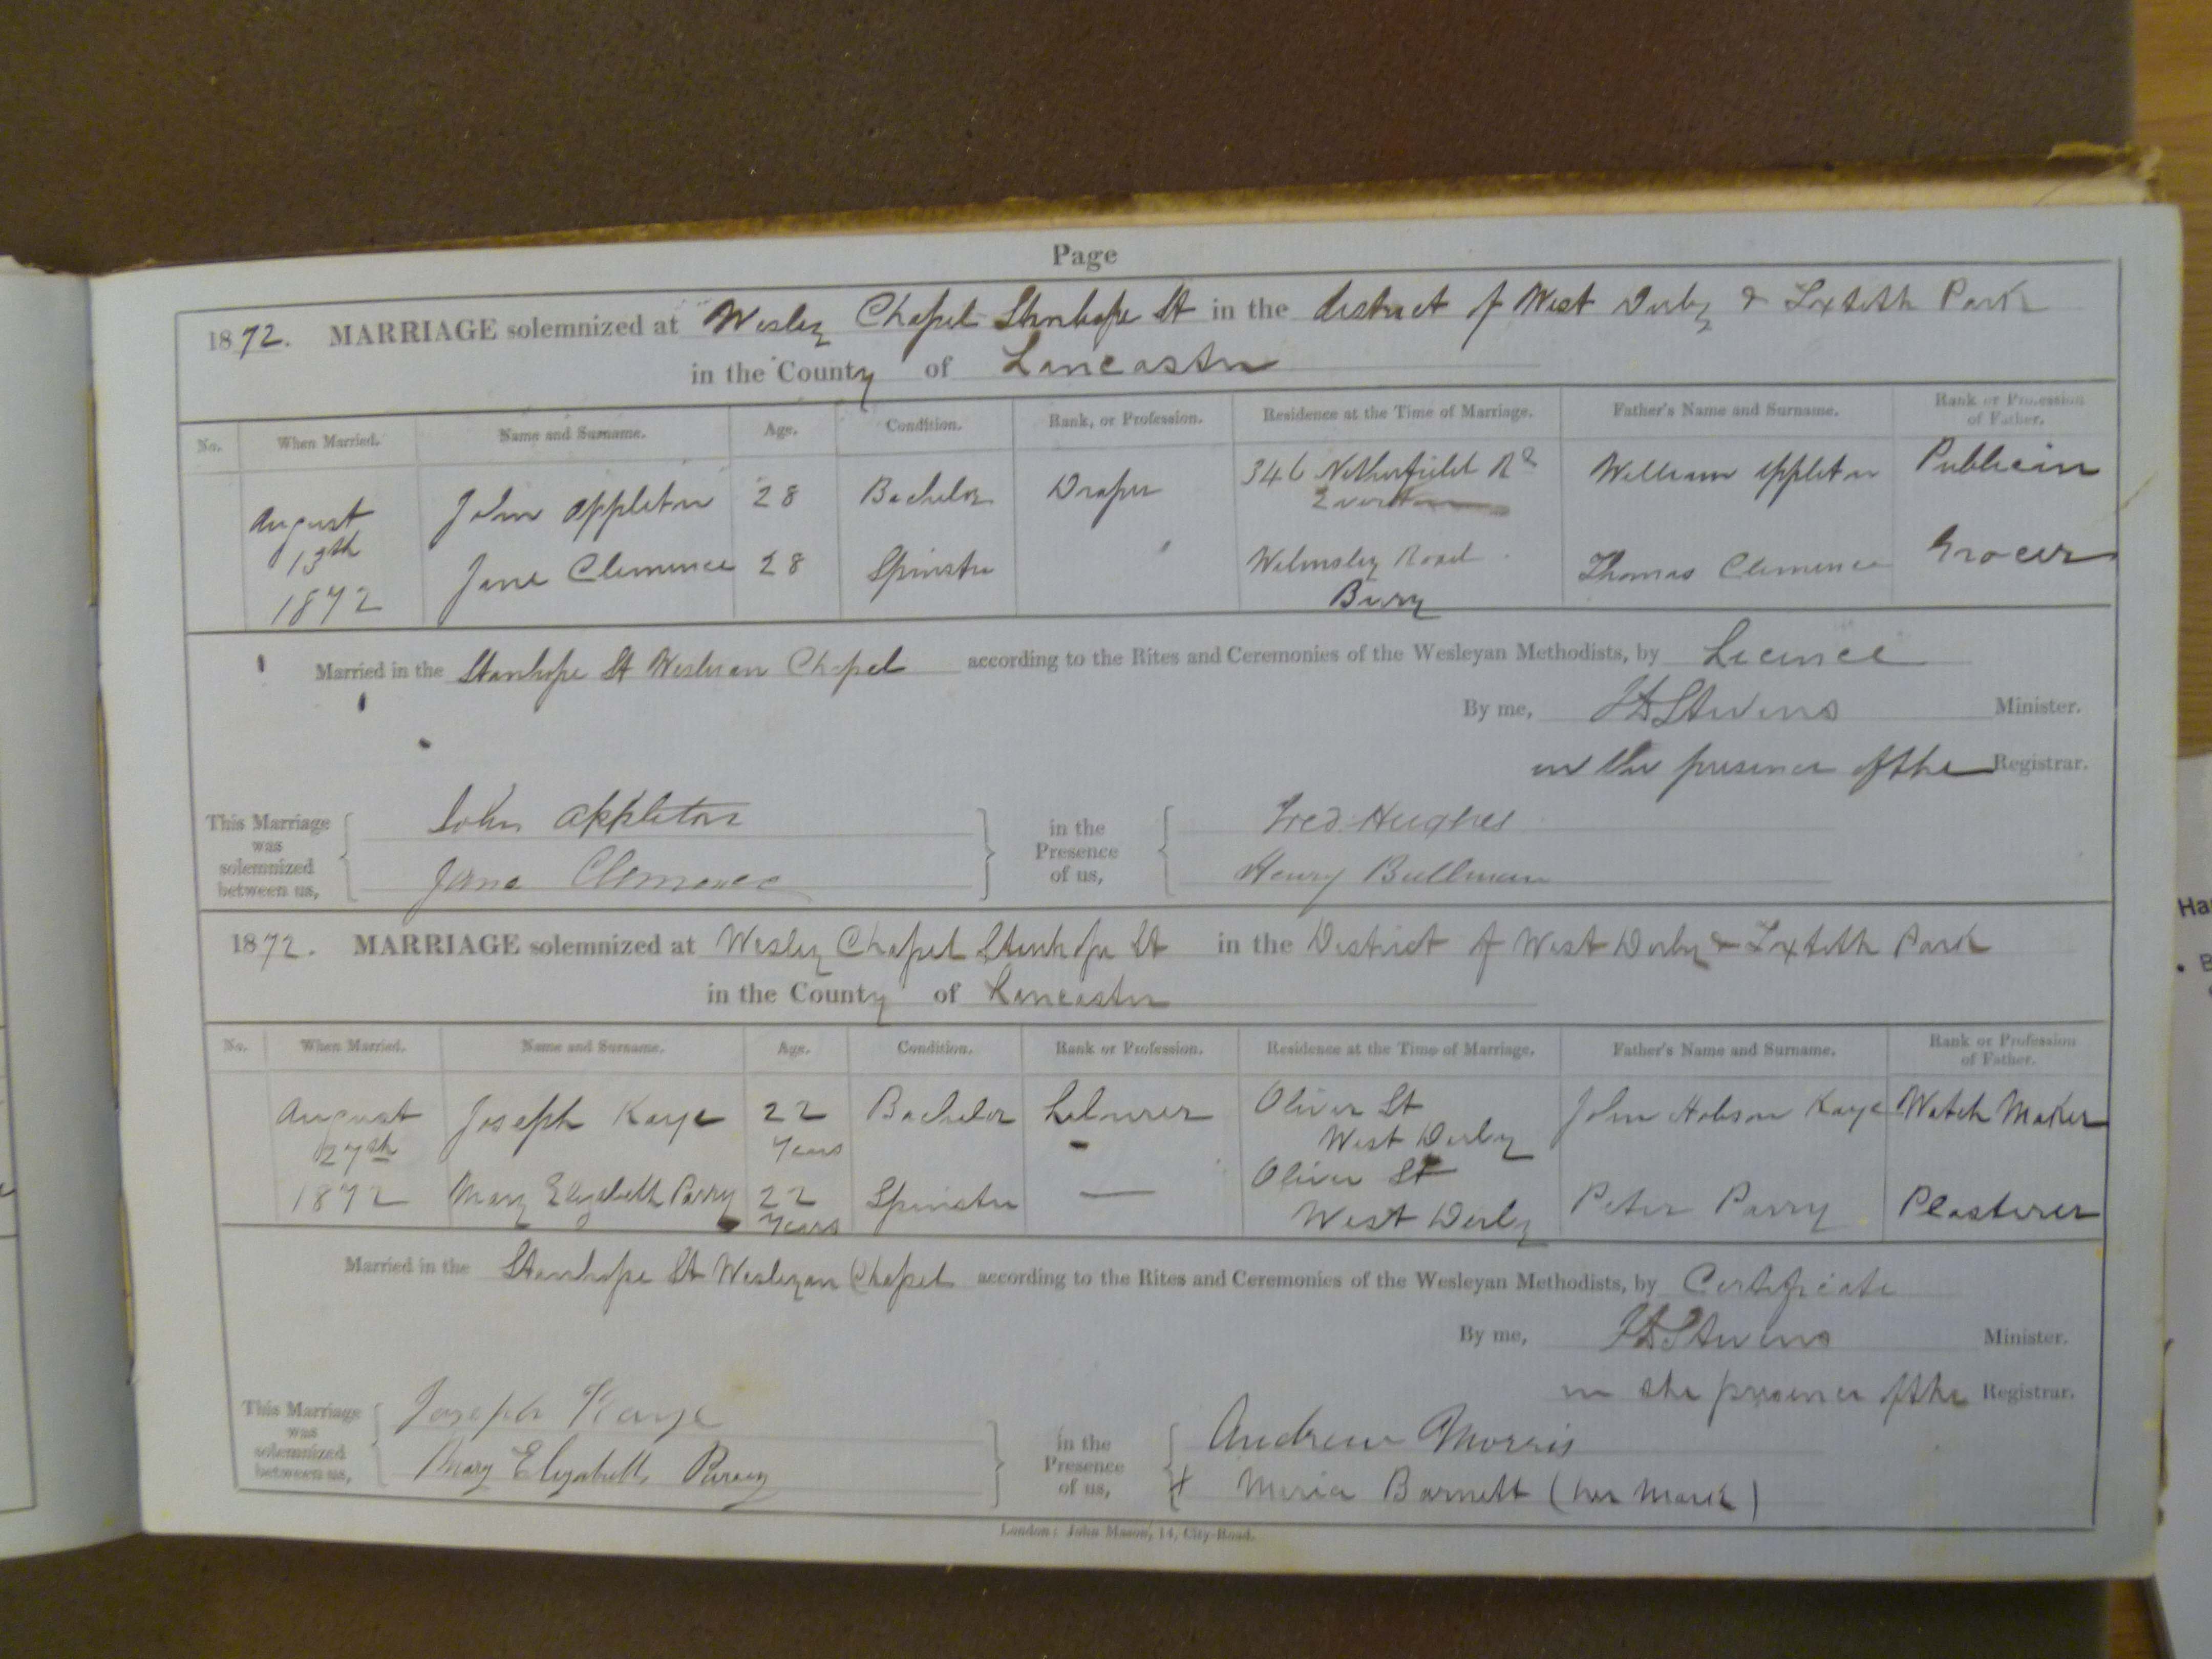 Page
1872. MARRIAGE solemnized at Wesley Chapel Stanhope St in the district of West Derby & Toxteth Park
in the County of Lancaster
No. When Married. Name and Surname. Age. Condition. Rank, or Profession. Residence at the Time of Marriage. Father's Name and Surname. Rank or Profession of Father.
August 13th 1872
John Appleton 28 Bachelor Draper 346 Netherfield Rd Everton William Appleton Publican
Jane Clemence 28 Spinster Walmsley Road Bury Thomas Clemence Grocer
Married in the Stanhope St Wesleyan Chapel according to the Rites and Ceremonies of the Wesleyan Methodists, by Licence
By me, Stevens Minister.
in the presence of the Registrar.
This Marriage was solemnized between us, John Appleton in the Presence of us, Fred Hughes
Jane Clemence Henry Bullman
1872. MARRIAGE solemnized at Wesley Chapel Stanhope St in the District of West Derby & Toxteth Park
in the County of Lancaster
No. When Married. Name and Surname. Age. Condition. Rank or Profession. Residence at the Time of Marriage. Father's Name and Surname. Rank or Profession of Father.
August 27th 1872
Joseph Kaye 22 Years Bachelor Labourer Oliver St West Derby John Hobson Kaye Watch Maker
Mary Elizabeth Parry 22 Years Spinster — Oliver St West Derby Peter Parry Plasterer
Married in the Stanhope St Wesleyan Chapel according to the Rites and Ceremonies of the Wesleyan Methodists, by Certificate
By me, Stevens Minister.
in the presence of the Registrar.
This Marriage was solemnized between us, Joseph Kaye in the Presence of us, Andrew Morris
Mary Elizabeth Parry X Maria Barnett (her mark)
London: John Mason, 14, City-Road.